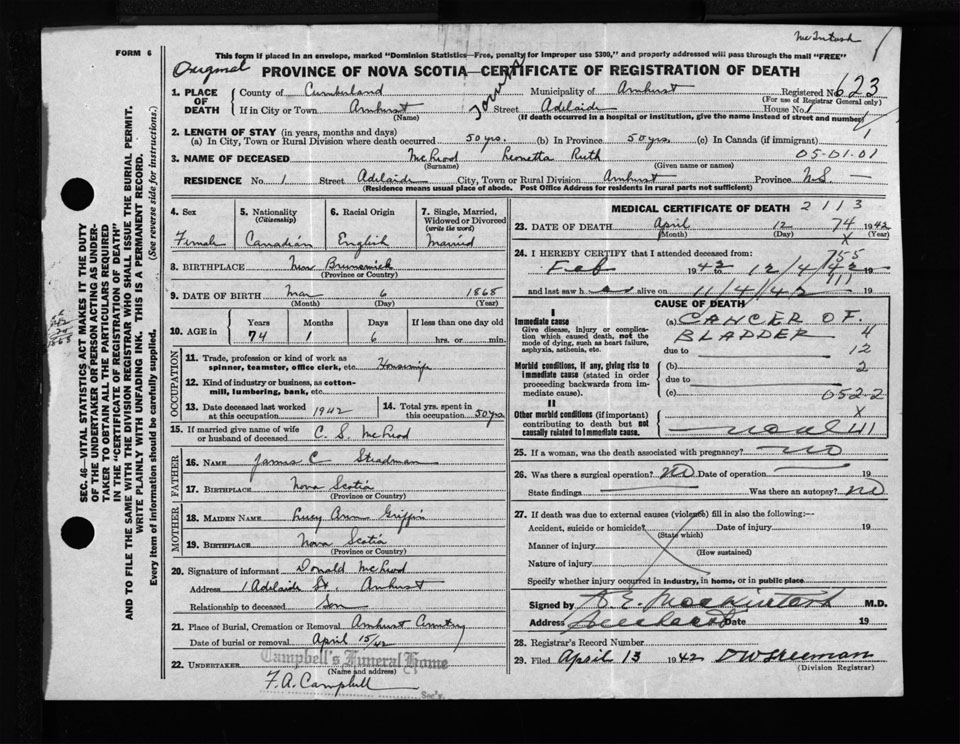 McIntosh
FORM 6
This form if placed in an envelope, marked "Dominion Statistics—Free, penalty for improper use $300," and properly addressed will pass through the mail "FREE"
Original
PROVINCE OF NOVA SCOTIA—CERTIFICATE OF REGISTRATION OF DEATH
1. PLACE OF DEATH County of Cumberland Municipality of Amherst Registered No 623
(For use of Registrar General only)
If in City or Town Amherst Street Adelaide House No. 1
(Name) (If death occurred in a hospital or institution, give the name instead of street and number)
2. LENGTH OF STAY (in years, months and days)
(a) In City, Town or Rural Division where death occurred 50 yrs. (b) In Province 50 yrs. (c) In Canada (if immigrant)
05-01.01
3. NAME OF DECEASED McLeod Leonetta Ruth
(Surname) (Given name or names)
RESIDENCE No. 1 Street Adelaide City, Town or Rural Division Amherst Province N.S.
(Residence means usual place of abode. Post Office Address for residents in rural parts not sufficient)
4. Sex 5. Nationality (Citizenship) 6. Racial Origin 7. Single, Married, Widowed or Divorced (write the word)
Female Canadian English Married
8. BIRTHPLACE New Brunswick
(Province or Country)
9. DATE OF BIRTH Mar 6 1868
(Month) (Day) (Year)
10. AGE in Years Months Days If less than one day old
74 1 6 hrs. or min.
OCCUPATION
11. Trade, profession or kind of work as spinner, teamster, office clerk, etc. Housewife
12. Kind of industry or business, as cotton-mill, lumbering, bank, etc.
13. Date deceased last worked at this occupation 1942 14. Total yrs. spent in this occupation 50 yrs
15. If married give name of wife or husband of deceased C. S. McLeod
FATHER
16. NAME James C Steadman
17. BIRTHPLACE Nova Scotia
(Province or Country)
MOTHER
18. MAIDEN NAME Lucy Ann Griffin
19. BIRTHPLACE Nova Scotia
(Province or Country)
20. Signature of informant Donald McLeod
Address 1 Adelaide St. Amherst
Relationship to deceased Son
21. Place of Burial, Cremation or Removal Amherst Cemetery
Date of burial or removal April 15/42
22. UNDERTAKER Campbell's Funeral Home
(Name and address)
F. A. Campbell
Sec'y.
MEDICAL CERTIFICATE OF DEATH 2113
23. DATE OF DEATH April 12 74 1942
(Month) (Day) X (Year)
24. I HEREBY CERTIFY that I attended deceased from: 755
Feb 1942 to 12/4/42 19
and last saw h alive on 11/4/42 19
CAUSE OF DEATH
I
Immediate cause
Give disease, injury or complication which caused death, not the mode of dying, such as heart failure, asphyxia, asthenia, etc.
(a) CANCER OF
BLADDER 4
due to 12
Morbid conditions, if any, giving rise to immediate cause (stated in order proceeding backwards from immediate cause).
(b) 2
due to
(c) 052-2
II
Other morbid conditions (if important) contributing to death but not causally related to immediate cause.
X
41
25. If a woman, was the death associated with pregnancy? NO
26. Was there a surgical operation? NO Date of operation 19
State findings Was there an autopsy? NO
27. If death was due to external causes (violence) fill in also the following:—
Accident, suicide or homicide? Date of injury 19
(State which)
Manner of injury
(How sustained)
Nature of injury
Specify whether injury occurred in industry, in home, or in public place
Signed by M.D.
Address Date 19
28. Registrar's Record Number
29. Filed April 13 1942
(Division Registrar)
SEC. 46—VITAL STATISTICS ACT MAKES IT THE DUTY
OF THE UNDERTAKER OR PERSON ACTING AS UNDER-
TAKER TO OBTAIN ALL THE PARTICULARS REQUIRED
IN THE "CERTIFICATE OF REGISTRATION OF DEATH"
AND TO FILE THE SAME WITH THE DIVISION REGISTRAR WHO SHALL ISSUE THE BURIAL PERMIT.
WRITE PLAINLY WITH UNFADING INK. THIS IS A PERMANENT RECORD.
Every item of information should be carefully supplied. (See reverse side for instructions.)